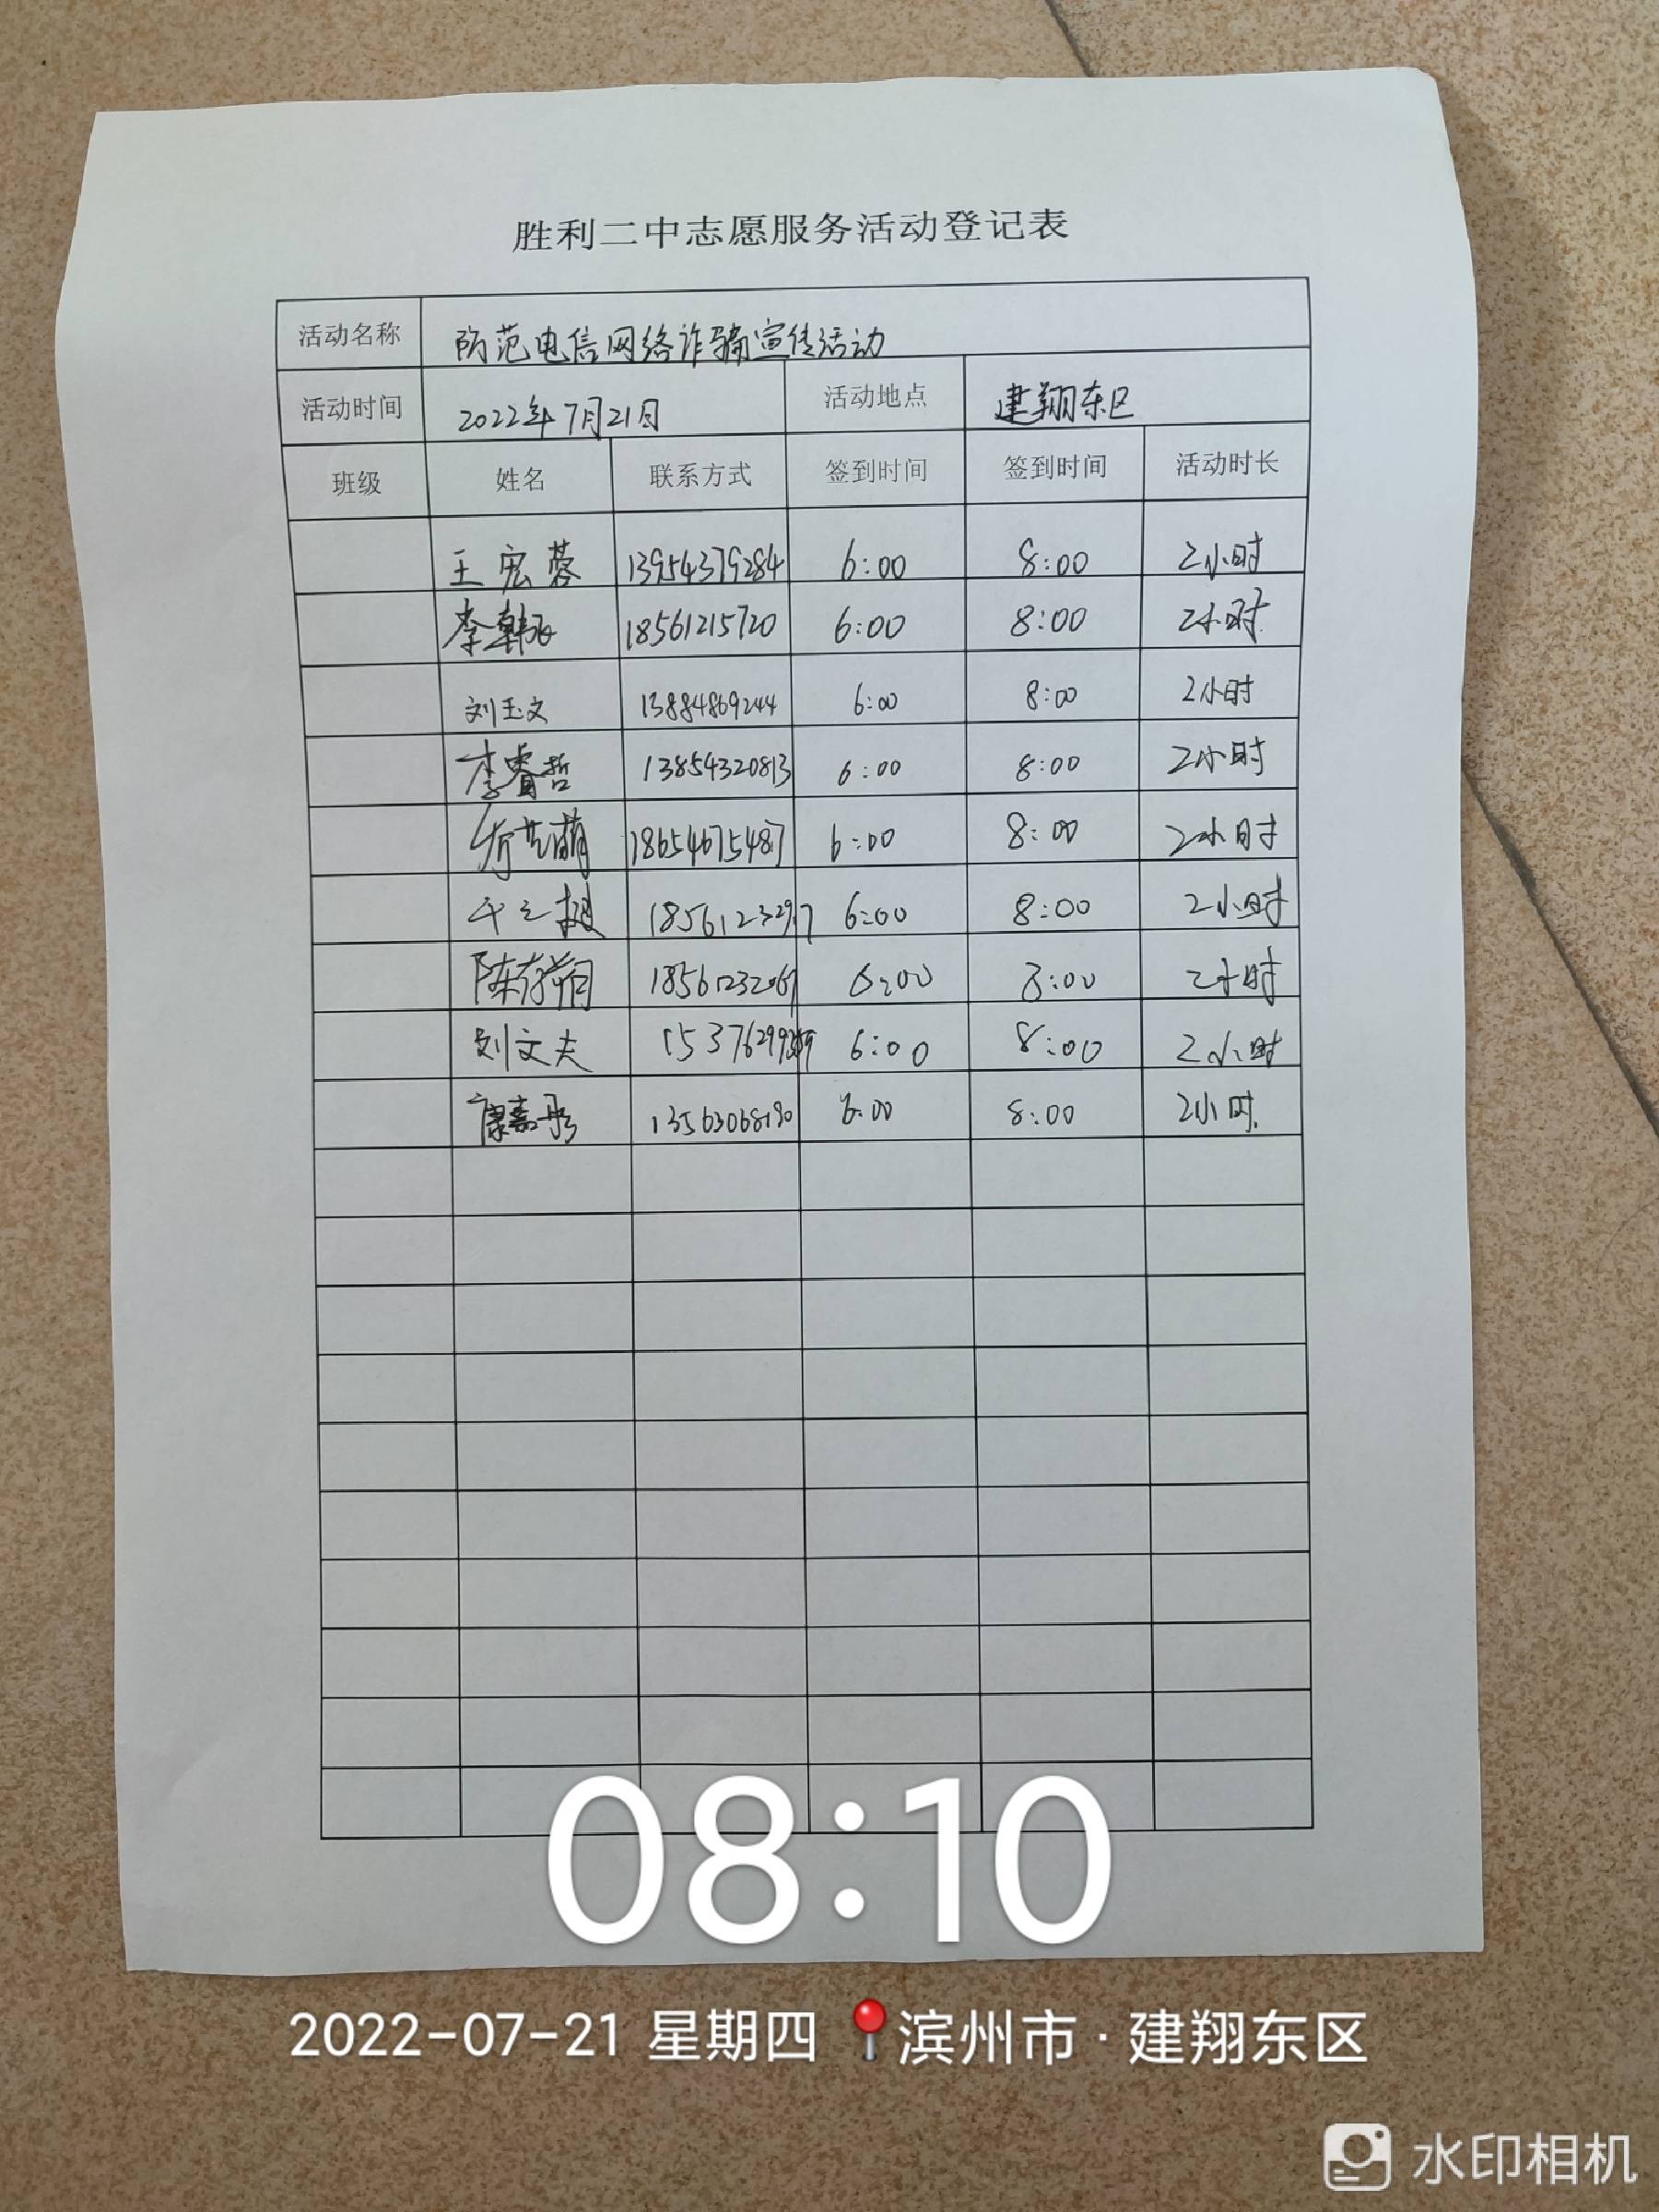 胜利二中志愿服务活动登记表
活动名称 防范电信网络诈骗宣传活动
活动时间 2022年7月21日 活动地点 建翔东区
班级 姓名 联系方式 签到时间 签到时间 活动时长
王宏蓉 13954379284 6:00 8:00 2小时
李韩 18561215720 6:00 8:00 2小时
刘玉文 13884869244 6:00 8:00 2小时
李睿哲 13854320813 6:00 8:00 2小时
萌 18654675487 6:00 8:00 2小时
18561232917 6:00 8:00 2小时
陈 6:00 8:00 2小时
刘文夫 6:00 8:00 2小时
康嘉彤 13563068190 6:00 8:00 2小时
08:10
2022-07-21 星期四 滨州市·建翔东区
水印相机